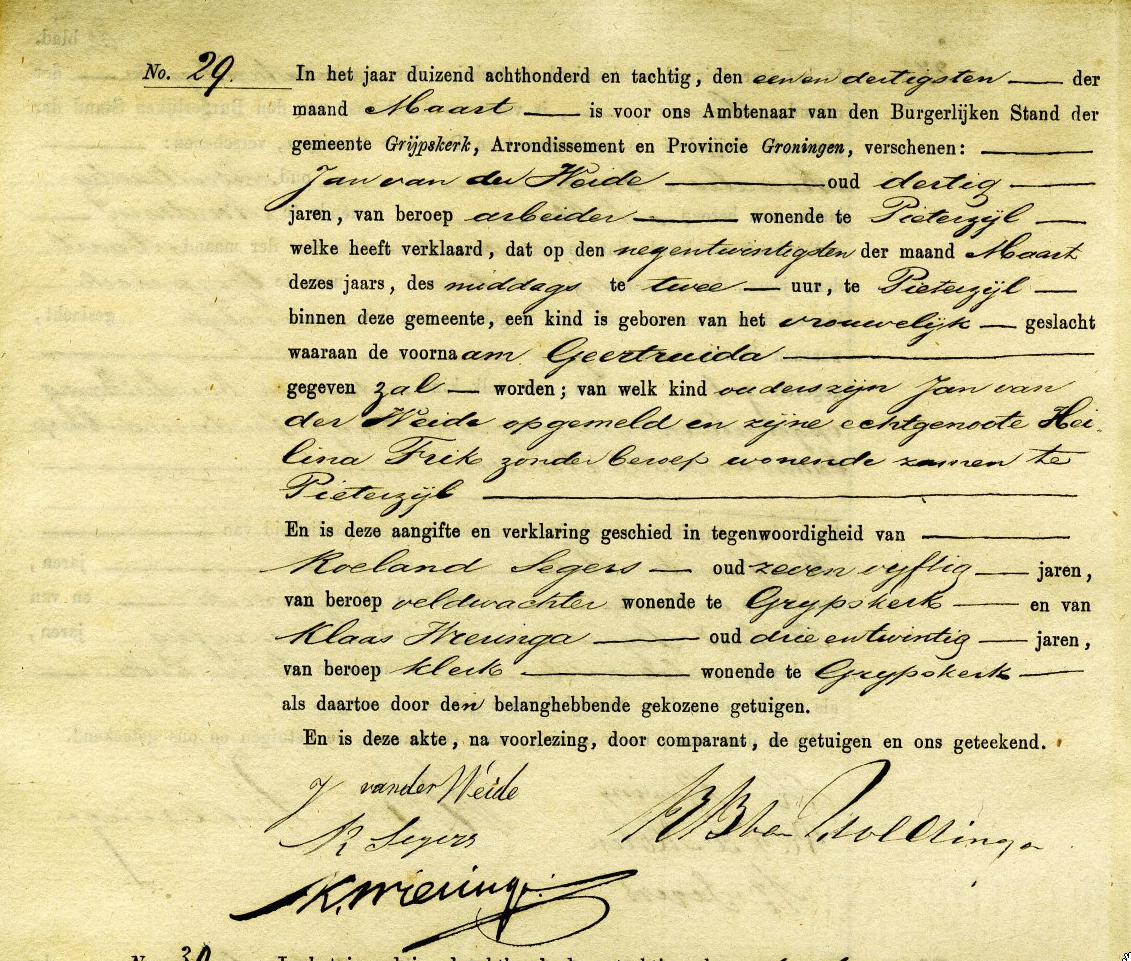 No. 29. In het jaar duizend achthonderd en tachtig, den een en dertigsten der
maand Maart is voor ons Ambtenaar van den Burgerlijken Stand der
gemeente Grijpskerk, Arrondissement en Provincie Groningen, verschenen:
Jan van der Weide oud dertig
jaren, van beroep arbeider wonende te Pieterzijl
welke heeft verklaard, dat op den negentwintigsten der maand Maart
dezes jaars, des middags te twee uur, te Pieterzijl
binnen deze gemeente, een kind is geboren van het vrouwelijk geslacht
waaraan de voornaam Geertruida
gegeven zal worden; van welk kind ouders zijn Jan van
der Weide opgemeld en zijne echtgenoote Hei-
lina Frik zonder beroep wonende zamen te
Pieterzijl
En is deze aangifte en verklaring geschied in tegenwoordigheid van
Roeland Segers oud zeven vijftig jaren,
van beroep veldwachter wonende te Grypskerk en van
Klaas Wieringa oud drie en twintig jaren,
van beroep klerk wonende te Grypskerk
als daartoe door den belanghebbende gekozene getuigen.
En is deze akte, na voorlezing, door comparant, de getuigen en ons geteekend.
J van der Weide
R Segers
K. Wieringa
No. 30